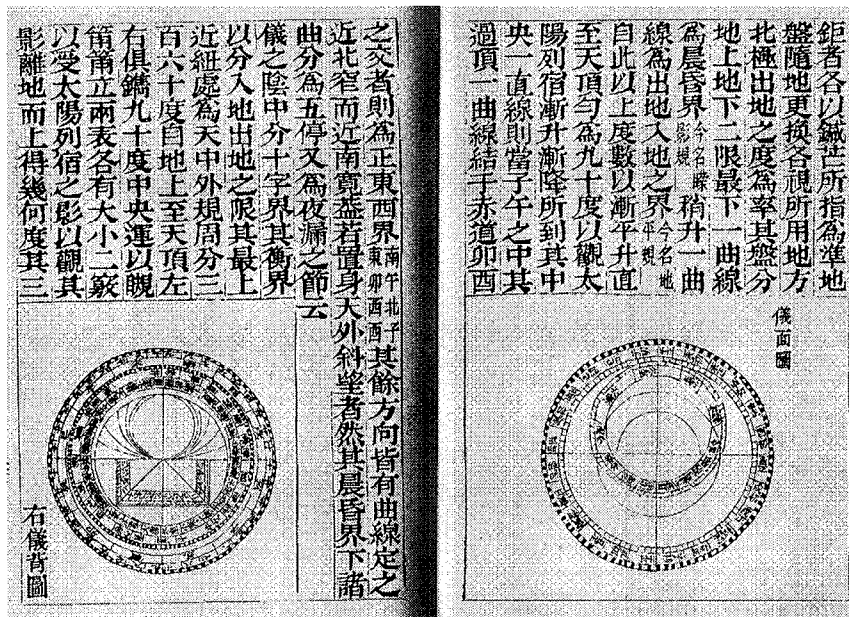 鉅者各以鍼芒所指為準地
盤隨地更換各視所用地方
北極出地之度為率其盤分
地上地下二限最下一曲線
為晨昏界今名曚影規稍升一曲
線為出地入地之界今名地平規
自此以上度數以漸平升直
至天頂勻為九十度以觀太
陽列宿漸升漸降所到其中
央一直線則當子午之中其
過頂一曲線結于赤道卯酉
儀面圖
之交者則為正東西界南午北子東卯西酉其餘方向皆有曲線定之
近北窄而近南寬蓋若置身天外斜望者然其晨昏界下諸
曲分為五停又為夜漏之節云
儀之陰中分十字界其衡界
以分入地出地之限其最上
近紐處為天中外規周分三
百六十度自地上至天頂左
右俱鐫九十度中央運以瞡
筩筩立兩表各有大小二竅
以受太陽列宿之影以觀其
影離地而上得幾何度其三
右儀背圖